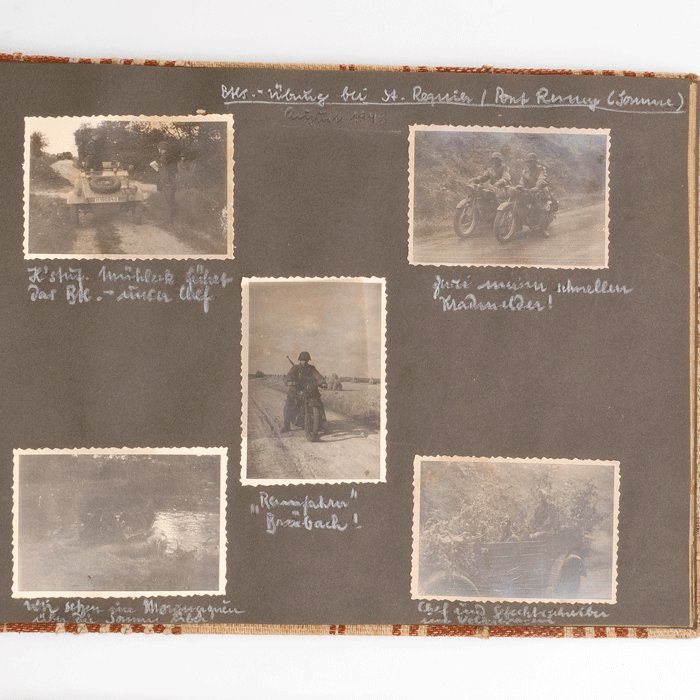 Btls.-Übung bei St. Requier / Pont Remy (Somme)
August 1941
H'stuf. Mühleck führt
das Btl. - unser Chef
Zwei meiner schnellen
Kradmelder!
"Rennfahrer"
Breubach!
Wir setzen eine
über die Somme über
Chef und Gefechtsschreiber